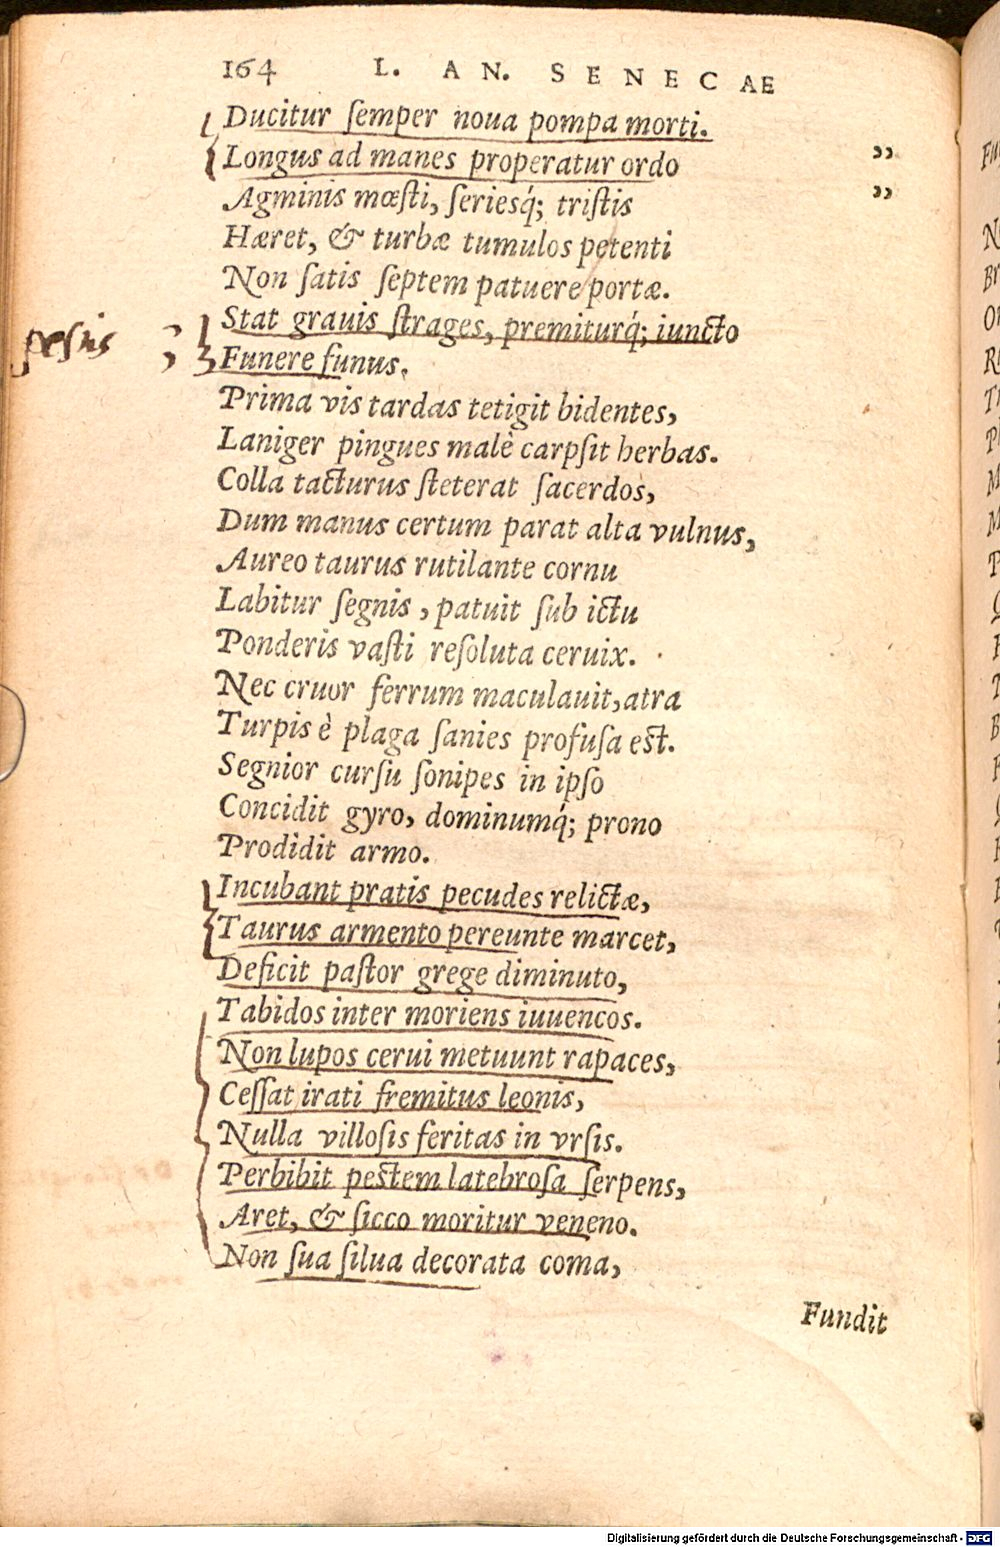 164 L. AN. SENECAE
Ducitur ſemper noua pompa morti.
Longus ad manes properatur ordo „
Agminis mœſti, ſeriesq́; triſtis „
Hæret, & turbæ tumulos petenti
Non ſatis ſeptem patuere portæ.
Stat grauis ſtrages, premiturq́; iuncto
Funere funus.
Prima vis tardas tetigit bidentes,
Laniger pingues malè carpſit herbas.
Colla tacturus ſteterat ſacerdos,
Dum manus certum parat alta vulnus,
Aureo taurus rutilante cornu
Labitur ſegnis, patuit ſub ictu
Ponderis vaſti reſoluta ceruix.
Nec cruor ferrum maculauit, atra
Turpis è plaga ſanies profuſa est.
Segnior curſu ſonipes in ipſo
Concidit gyro, dominumq́; prono
Prodidit armo.
Incubant pratis pecudes relictæ,
Taurus armento pereunte marcet,
Deficit paſtor grege diminuto,
Tabidos inter moriens iuuencos.
Non lupos cerui metuunt rapaces,
Ceſſat irati fremitus leonis,
Nulla villoſis feritas in vrſis.
Perbibit pestem latebroſa ſerpens,
Aret, & ſicco moritur veneno.
Non ſua ſilua decorata coma,
Fundit
Digitalisierung gefördert durch die Deutsche Forschungsgemeinschaft - DFG